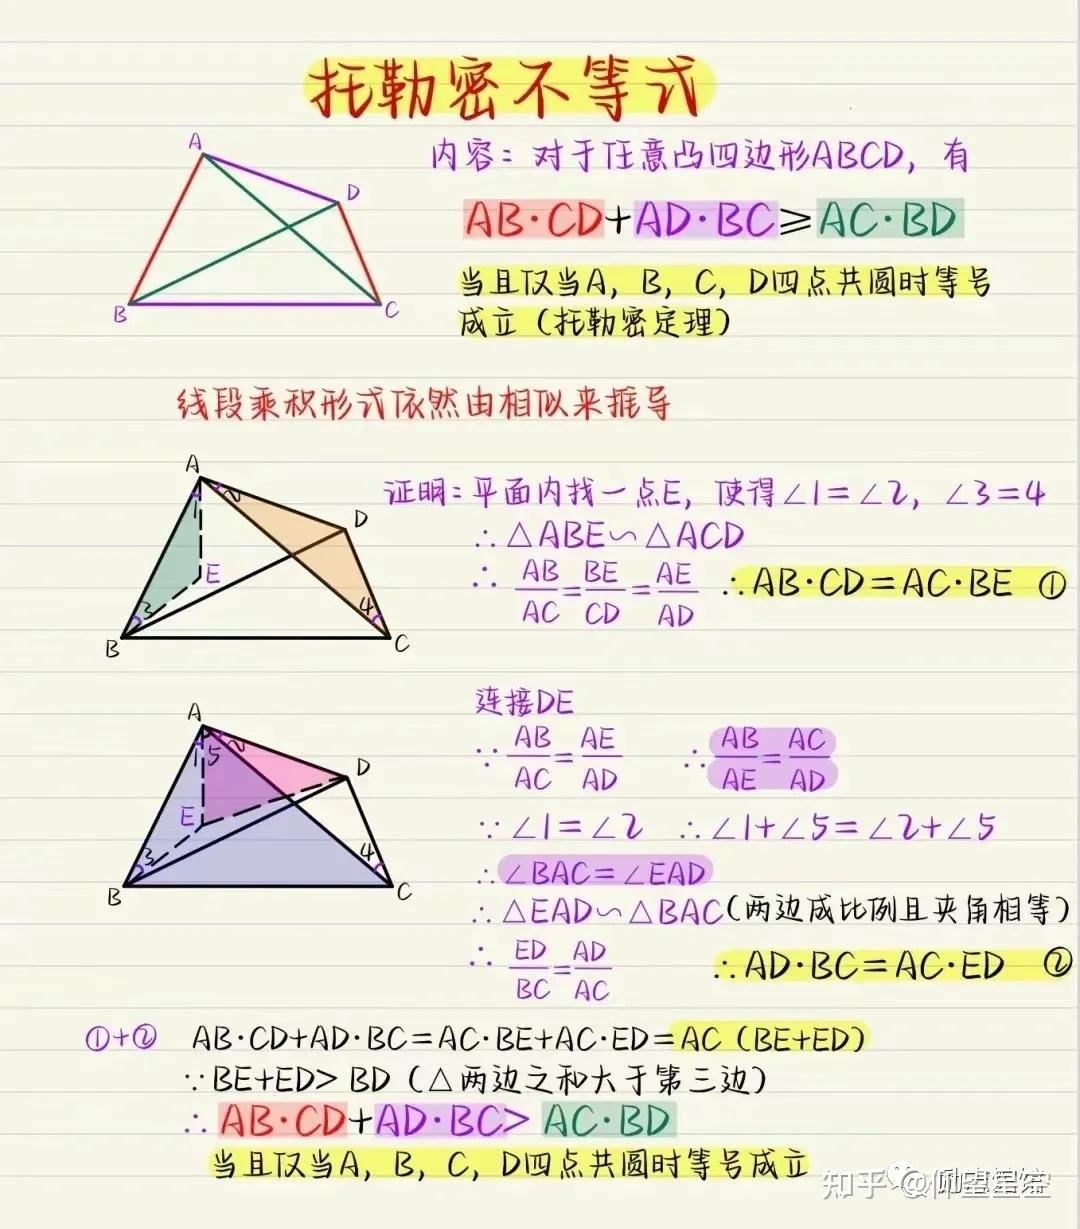 托勒密不等式
A
D
B
C
内容：对于任意凸四边形ABCD，有
AB·CD+AD·BC≥AC·BD
当且仅当A，B，C，D四点共圆时等号
成立（托勒密定理）
线段乘积形式依然由相似来推导
A
1 2
D
E
3
4
B
C
证明：平面内找一点E，使得∠1=∠2，∠3=4
∴△ABE∽△ACD
∴ AB/AC=BE/CD=AE/AD ∴AB·CD=AC·BE ①
A
1 5 2
D
E
3
4
B
C
连接DE
∵ AB/AC=AE/AD ∴ AB/AE=AC/AD
∵∠1=∠2 ∴∠1+∠5=∠2+∠5
∴∠BAC=∠EAD
∴△EAD∽△BAC（两边成比例且夹角相等）
∴ ED/BC=AD/AC ∴AD·BC=AC·ED ②
①+② AB·CD+AD·BC=AC·BE+AC·ED=AC（BE+ED）
∵BE+ED>BD（△两边之和大于第三边）
∴ AB·CD+AD·BC>AC·BD
当且仅当A，B，C，D四点共圆时等号成立
知乎 @仰望星空